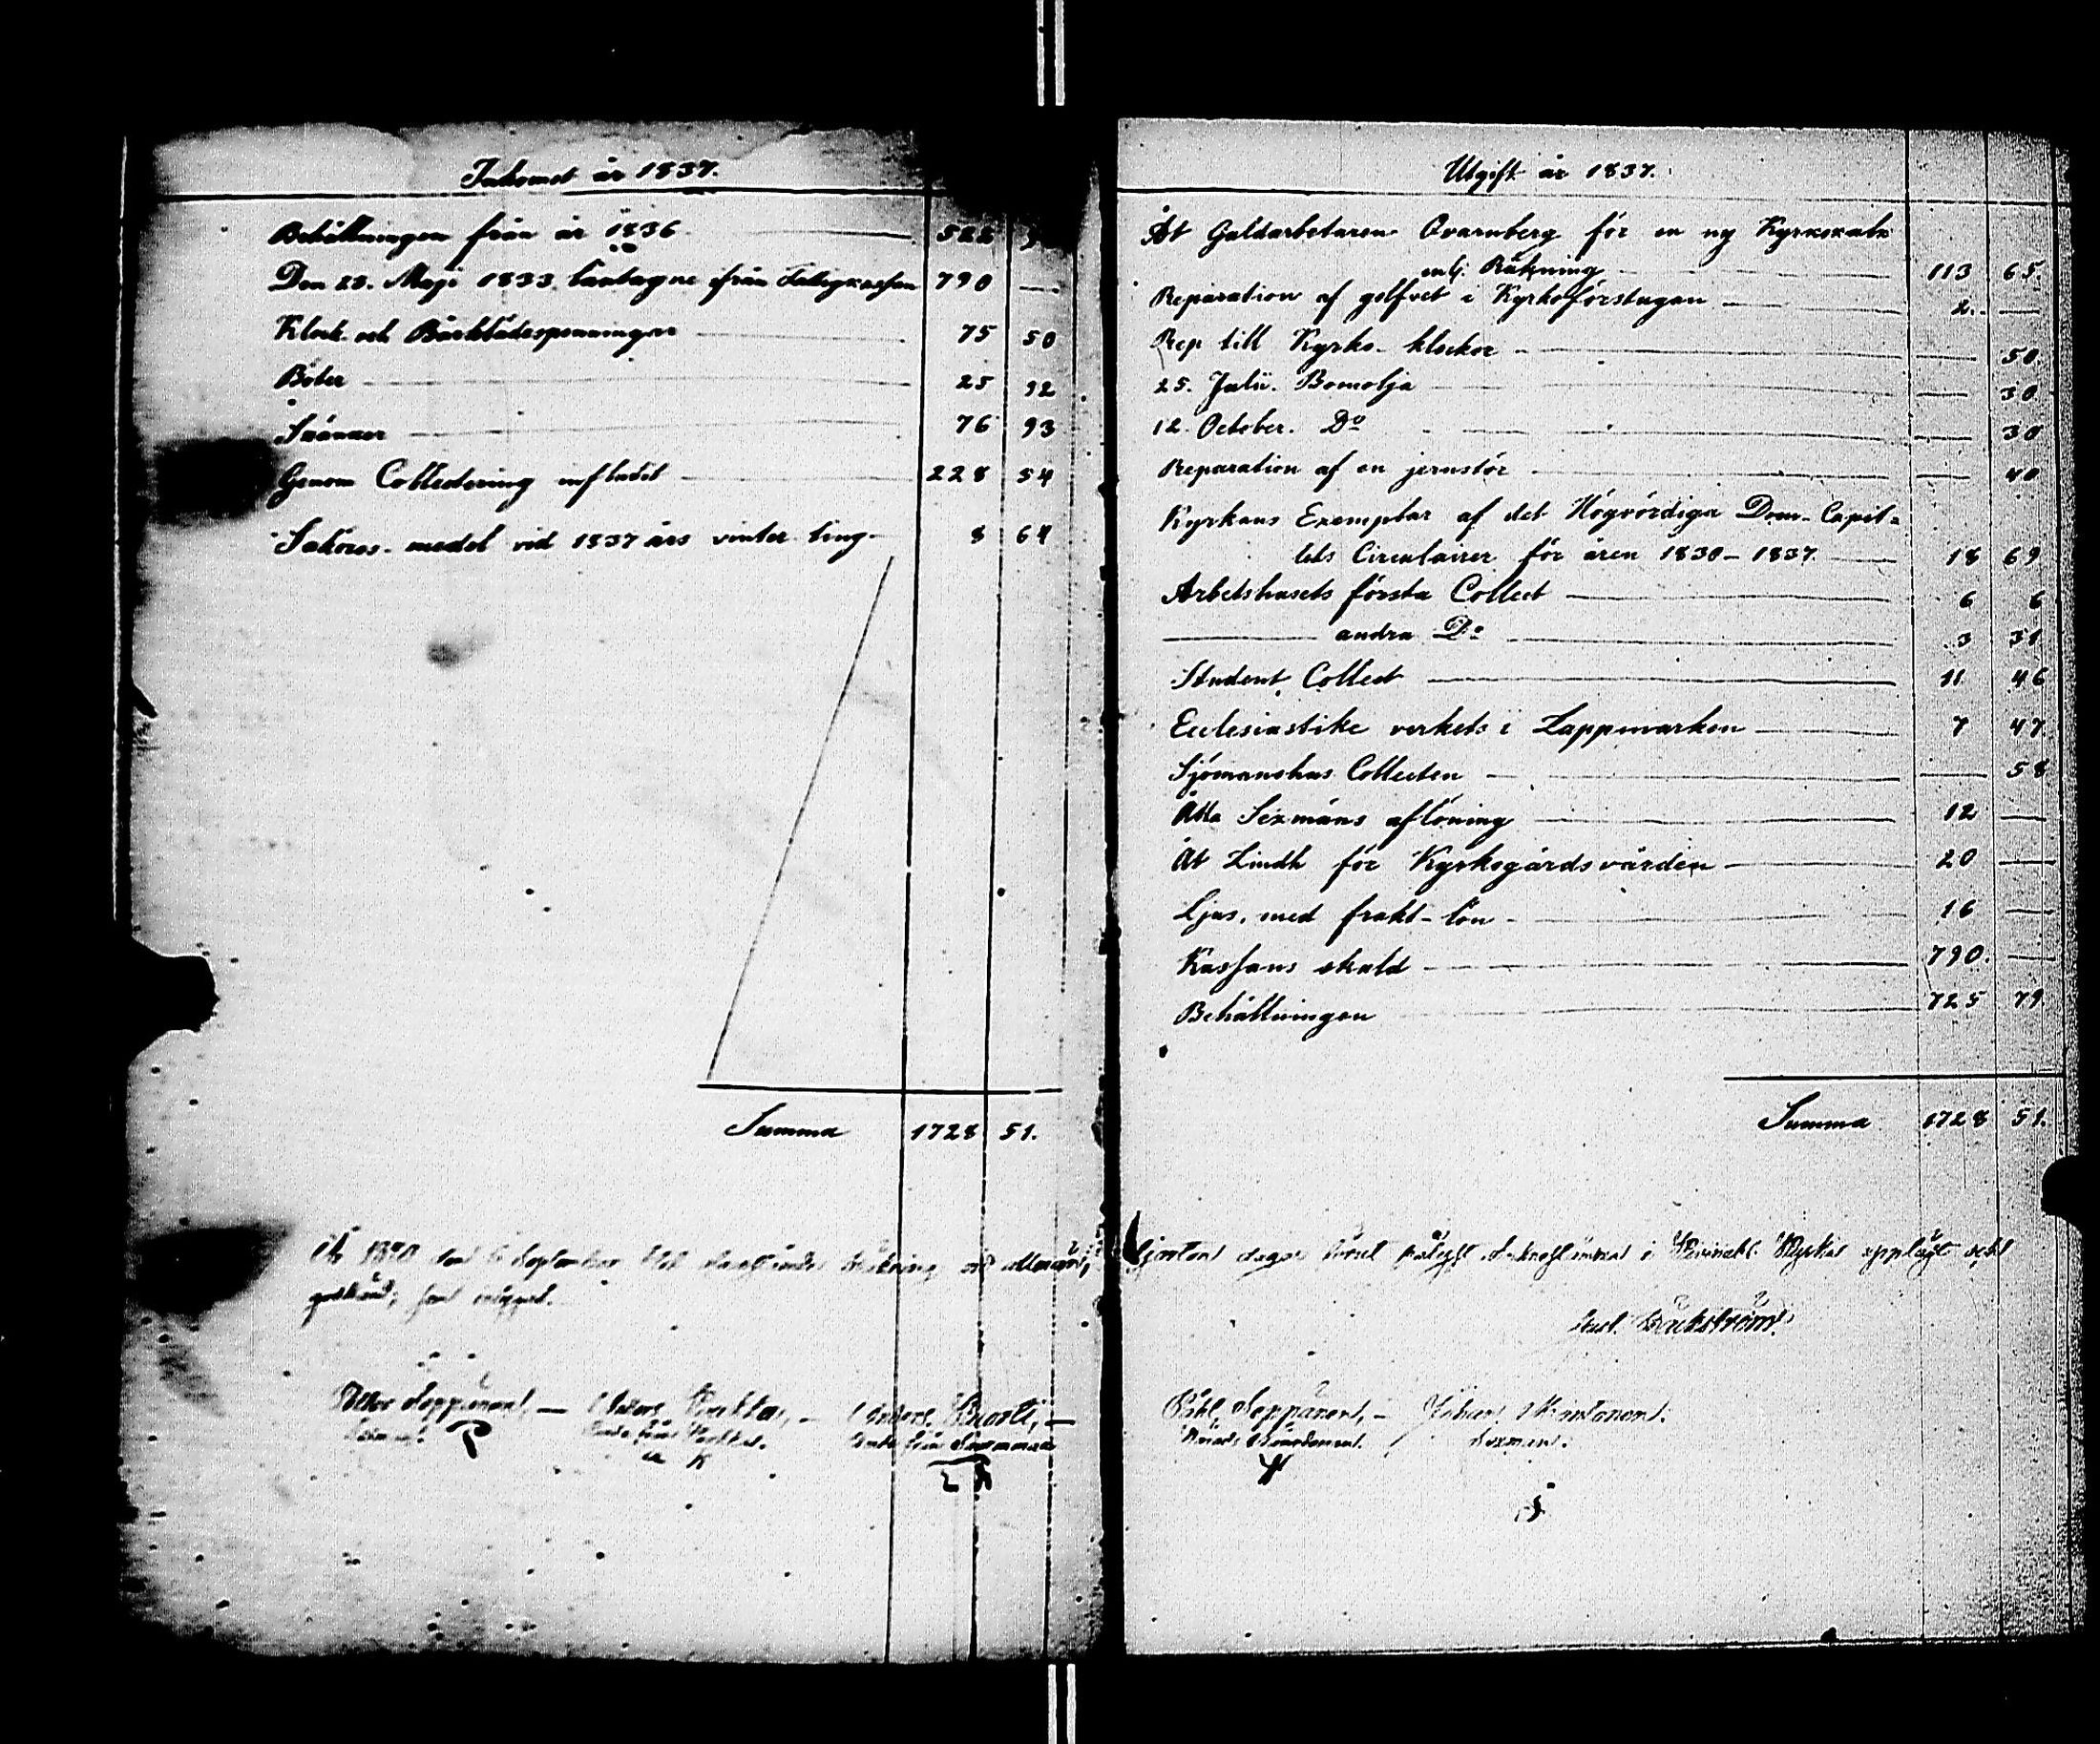 Inkomst år 1837.
Behållningen från år 1836 522
Den 28. Maji 1833 låntagne från Fattigkassan 790 —
Klock- och Bårklädespenningar 75 50
Böter 25 92
Spänner 76 93
Genom Collectering influtit 228 54
Saköres-medel vid 1837 års vinter ting 8 64
Summa 1728 51.
År den September Räkning
godkänd,
Seppänen, — Anders — Anders Knorti, —
P K
Utgift år 1837.
Åt Guldarbetaren Qvarnberg för en ny Kyrkokalk
enl. Räkning 113 65.
Reparation af golfvet i Kyrkoförstugan 2. —
Rep till Kyrko-klockor — 50
25. Julii. Bomolja — 30
12. October. Do — 30
Reparation af en jernstör — 40
Kyrkans Exemplar af det Högvördiga Dom-Capit-
lets Circulairer för åren 1830–1837. 18 69
Arbetshusets första Collect 6 6
— andra Do 3 31
Student Collect 11 46
Ecclesiastike verkets i Lappmarken 7 47
Sjömanshus Collecten — 58
Åtta Sexmäns aflöning 12 —
Åt Lindh för Kyrkogårdsvården 20 —
Ljus, med frakt-lön 16 —
Kassans skuld 790. —
Behållningen 725 79
Summa 1728 51.
fjorton dagar förut i Kyrka upplagt och
Seppänen, — Johan
Sexman.